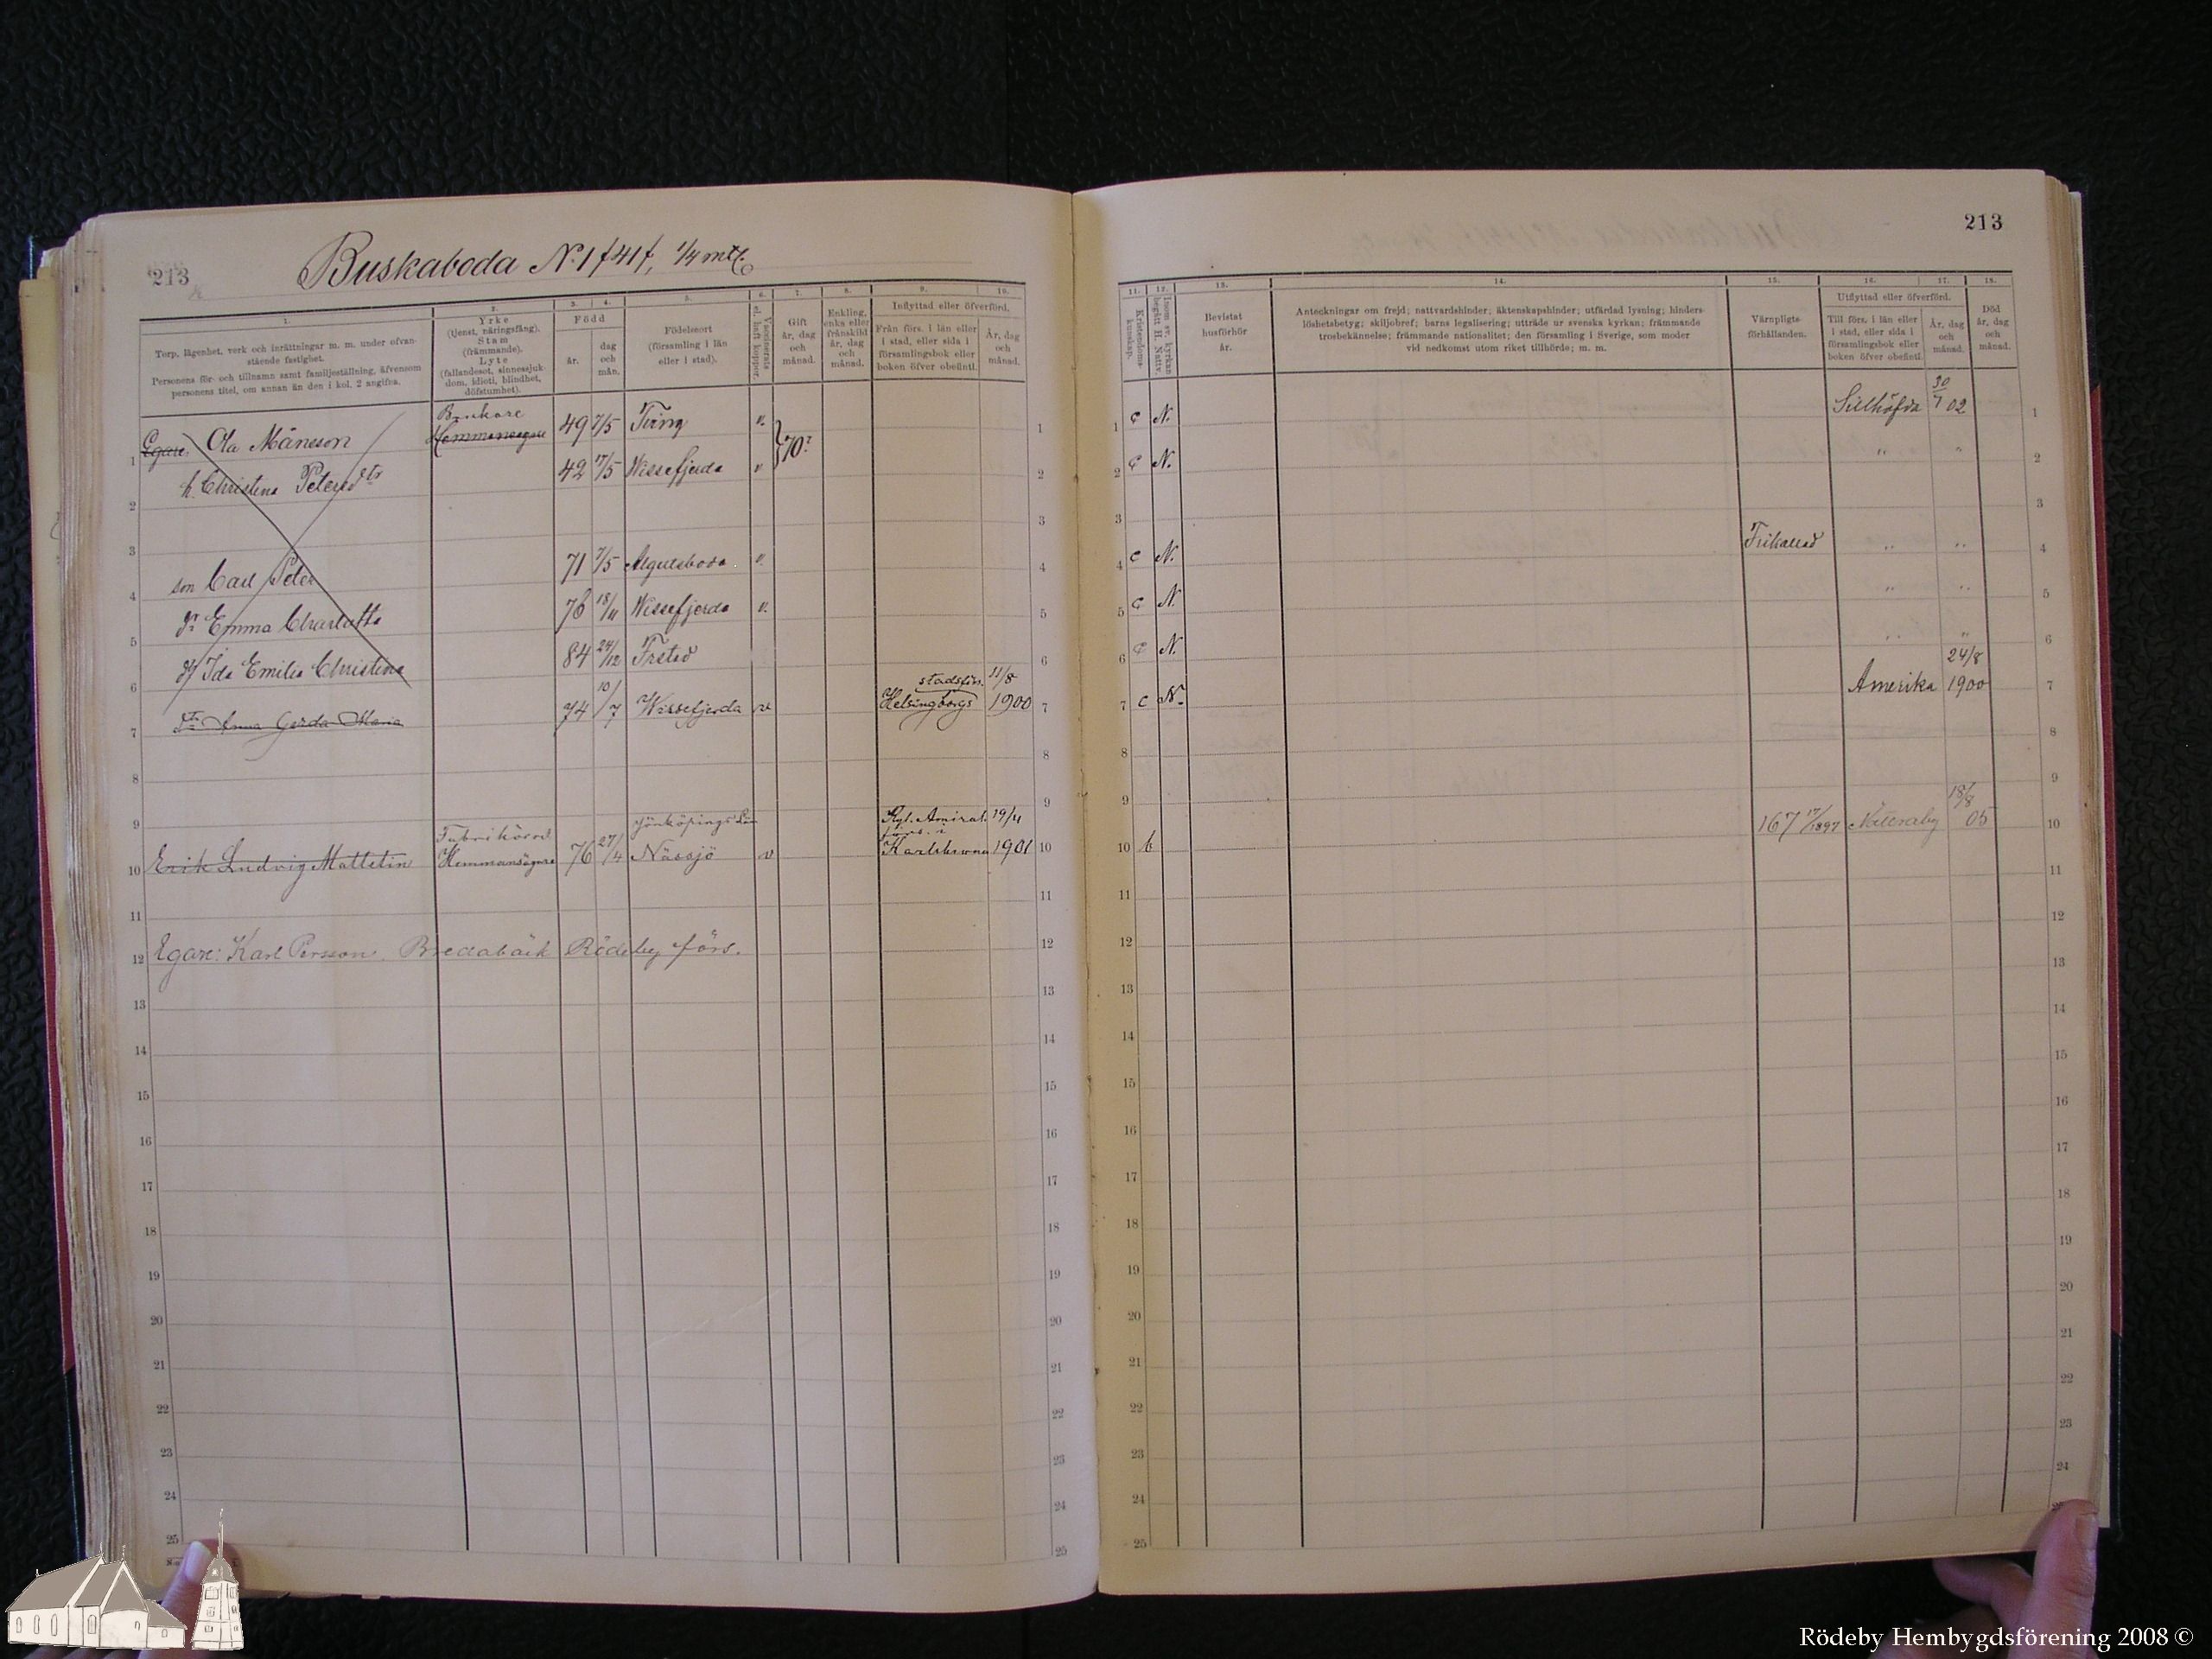 213
Buskaboda N:1 f 41 f, 1/4 mtl.
1. 2. 3. 4. 5. 6. 7. 8. 9. 10.
Torp, lägenhet, verk och inrättningar m. m. under ofvan-
stående fastighet.
Personens för- och tillnamn samt familjeställning, äfvensom
personens titel, om annan än den i kol. 2 angifna.
Yrke
(tjenst, näringsfång).
Stam
(främmande).
Lyte
(fallandesot, sinnessjuk-
dom, idioti, blindhet,
döfstumhet).
Född
år.
dag
och
mån.
Födelseort
(församling i län
eller i stad).
Vaccinerats
el. haft koppor.
Gift
år, dag
och
månad.
Enkling,
enka eller
frånskild
år, dag
och
månad.
Inflyttad eller öfverförd.
Från förs. i län eller
i stad, eller sida i
församlingsbok eller
boken öfver obefintl.
År, dag
och
månad.
Brukare
1 Egare Ola Månsson Hemmansegare 49 7/5 Tving v. }70? 1
2 h. Christina Petersdtr 42 17/5 Wissefjerda v. 2
3 3
4 son Carl Peter 71 7/5 Algutsboda v. 4
5 dr Emma Charlotta 76 18/11 Wissefjerda v. 5
6 df Ida Emilia Christina 84 24/12 Frstad 6
stadsförs. 11/8
7 Dr Anna Gerda Maria 74 10/7 Wissefjerda v Helsingborgs 1900 7
8 8
9 9
Fabriksarb. Jönköpings län Kgl. Amiral. 19/11
förs. i
10 Erik Ludvig Mattetin Hemmansägare 76 27/4 Nässjö v Karlskrona 1901 10
11 11
12 Egare: Karl Persson. Bredabäck Rödeby förs. 12
13 13
14 14
15 15
16 16
17 17
18 18
19 19
20 20
21 21
22 22
23 23
24 24
25 25
213
11. 12. 13. 14. 15. 16. 17. 18.
Kristendoms-
kunskap.
Inom sv. kyrkan
begått H. Nattv.
Bevistat
husförhör
år.
Anteckningar om frejd; nattvardshinder; äktenskapshinder; utfärdad lysning; hinders-
löshetsbetyg; skiljobref; barns legalisering; utträde ur svenska kyrkan; främmande
trosbekännelse; främmande nationalitet; den församling i Sverige, som moder
vid nedkomst utom riket tillhörde; m. m.
Värnpligts-
förhållanden.
Utflyttad eller öfverförd.
Till förs. i län eller
i stad, eller sida i
församlingsbok eller
boken öfver obefintl.
År, dag
och
månad.
Död
år, dag
och
månad.
1 c N. Sillhöfda 30/7 02 1
2 c N. " " 2
3 3
4 c N. Frikallad " " 4
5 c N. " " 5
6 c N. " " 6
24/8
7 c N. Amerika 1900 7
8 8
9 9
18/8
10 b 167 17/1897 Nättraby 05 10
11 11
12 12
13 13
14 14
15 15
16 16
17 17
18 18
19 19
20 20
21 21
22 22
23 23
24 24
25
Rödeby Hembygdsförening 2008 ©